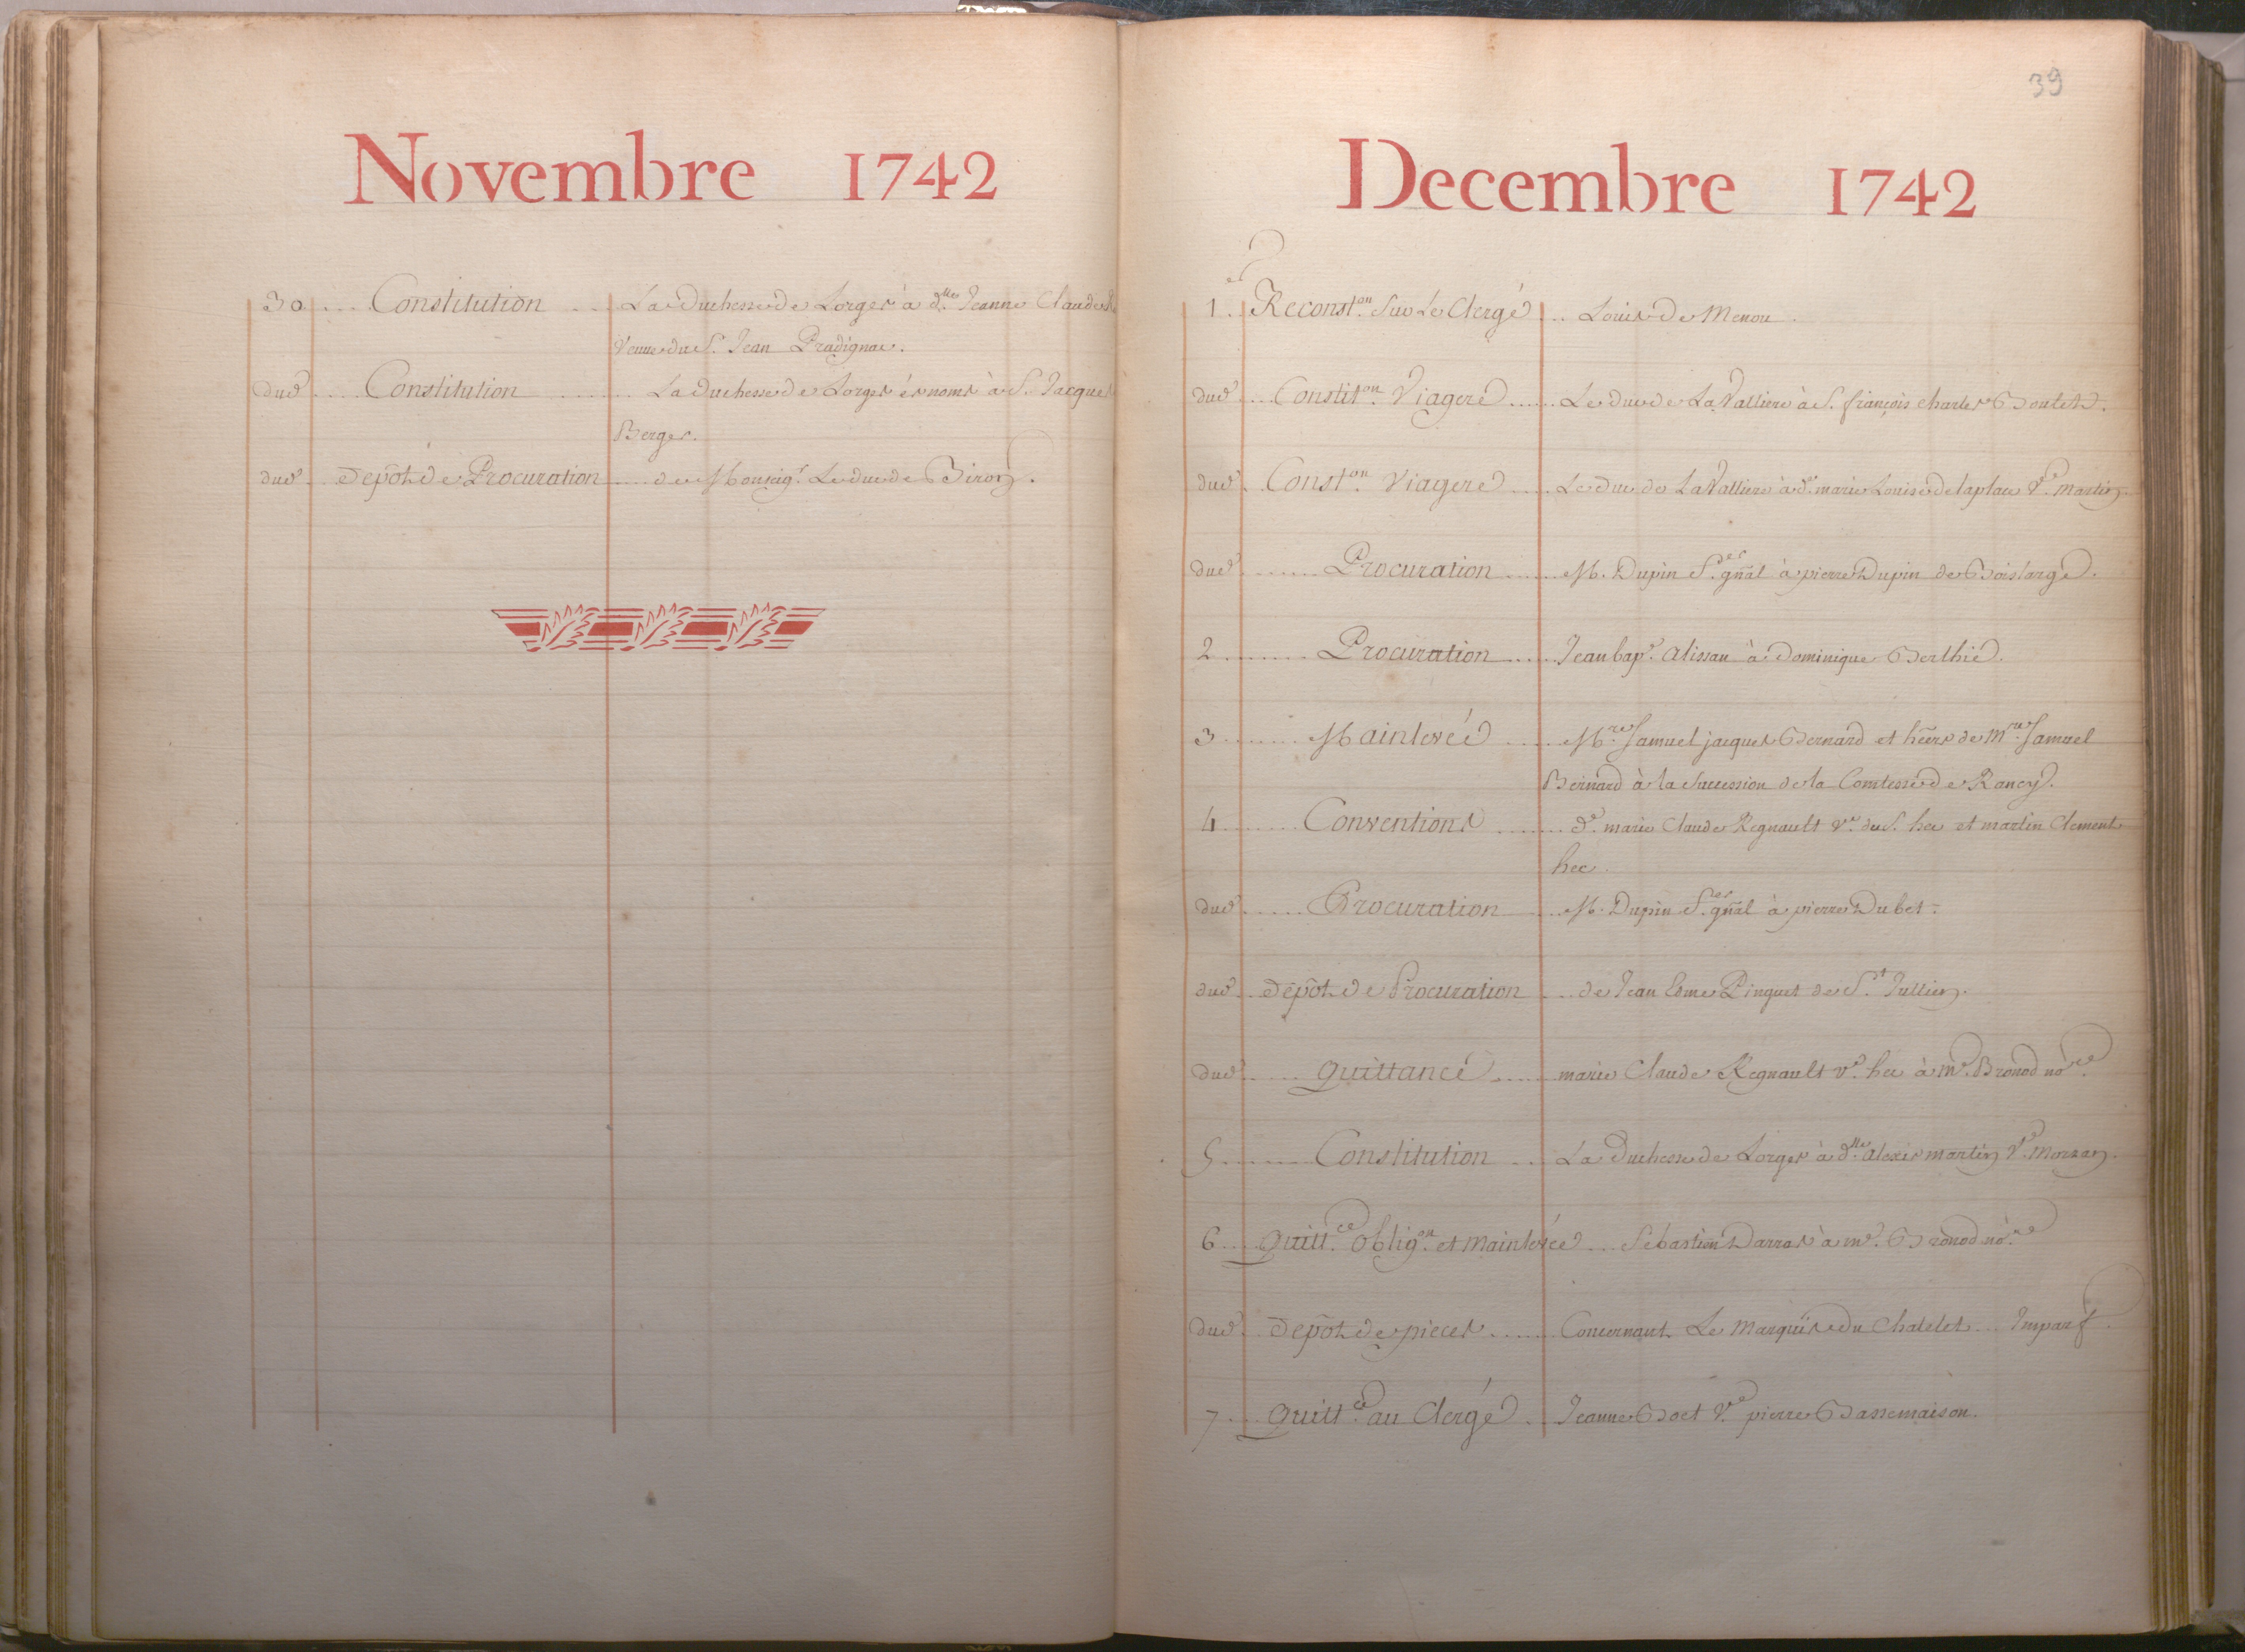 Novembre 1742
30 .... Constitution .... La Duchesse de Lorges à d.lle Jeanne Claude
Veuve du S. Jean Pradignac.
dud .... Constitution ........ La Duchesse de Lorges és noms à S. Jacques
Berger.
dud ... Depôt de Procuration ..... de Monseig.r Le duc de Biron.
39
Decembre 1742
1. Reconst.on Sur Le Clergé ... Louis de Menou.
dud .... Constit.on Viagere ...... Le duc de La Valliere à S. françois charles Boutet.
dud . Const.on Viagere ..... Le duc de La Valliere à d.e marie Louise de laplace V.e Martin
dud ........ Procuration ...... M. Dupin S.es gñal à pierre Dupin de Boislarge.
2 ........ Procuration ..... Jean bap.e Alissan à Dominique Berthié.
3 ........ Mainlevée ..... M.re Samuel jacques Bernard et héērs de M.re Samuel
Bernard à la Succession de la Comtesse de Rancy.
4 ........ Conventions ........ d.e marie Claude Regnault V.e du S. hec et martin Clement
hec.
dud ...... Procuration .... M. Dupin S.es gñal à pierre Dubet.
dud .. Depôt de Procuration .... de Jean Edme Pinguet de S.t Jullien.
dud ..... Quittance ..... marie Claude Regnault v.e hec à m.e Bronod no.re
5 ........ Constitution .... La Duchesse de Lorges à d.lle alexis martin V.e Morzan.
6 .... Quitt.ce Oblig.on et Mainlevée ... Sebastien Darras à m.e Bronod no.re
dud . Depôt de pieces ....... Concernant Le Marquis du Chatelet ... Imparf.
7 .... Quitt.ce au Clergé .. Jeanne Boet V.e pierre Bassemaison.